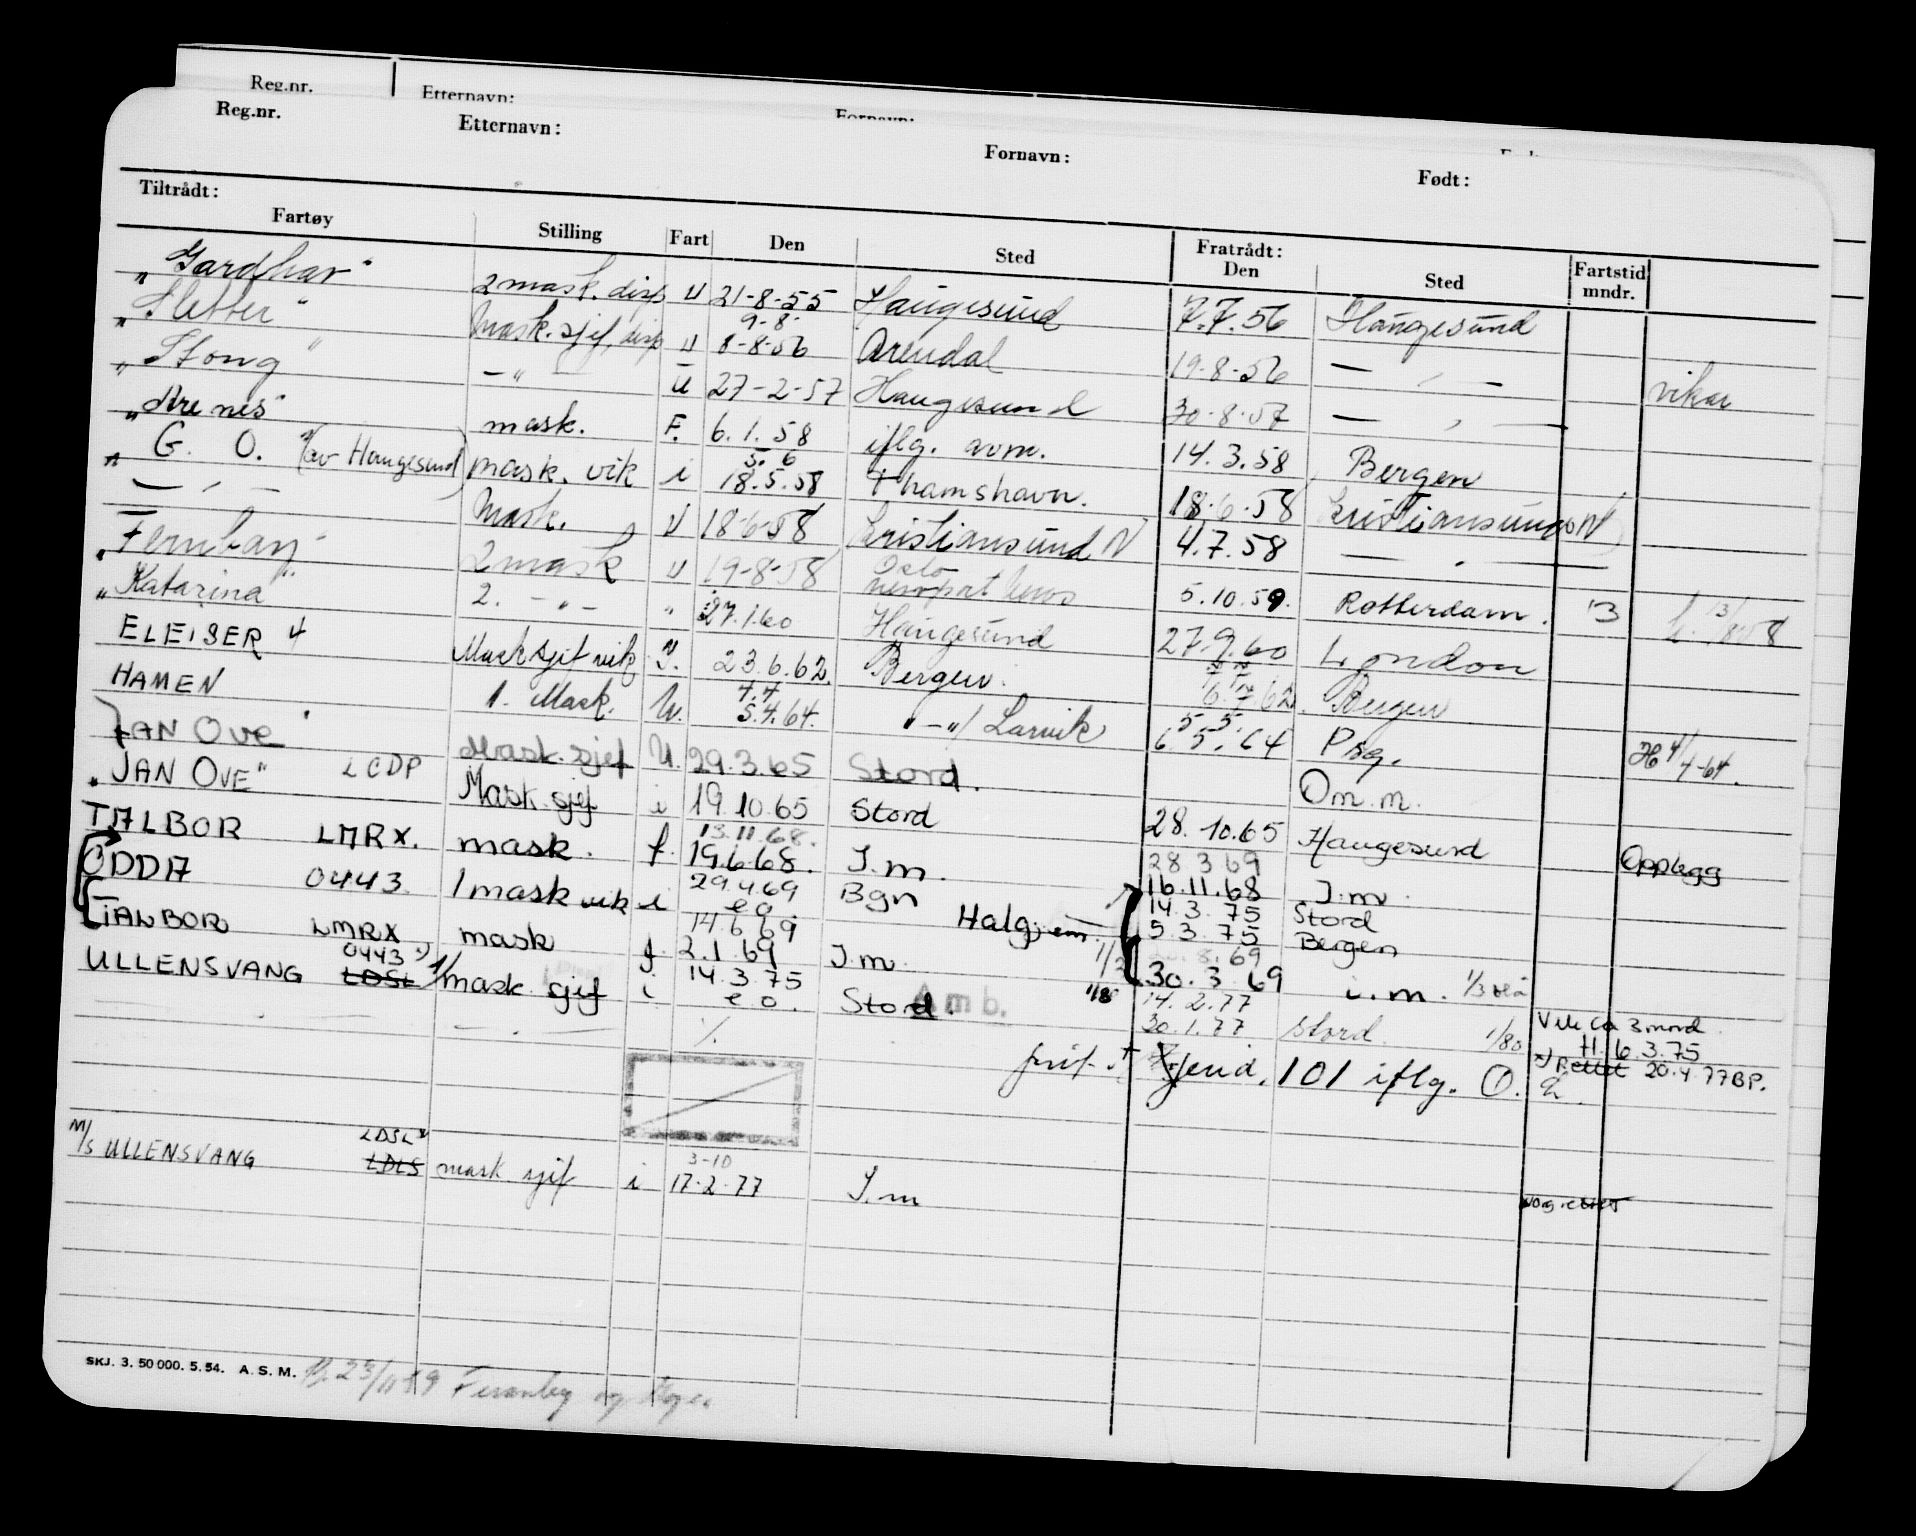 Reg.nr. Etternavn: Fornavn:
Reg.nr. Etternavn: Fornavn: Født:
Tiltrådt: Fratrådt:
Fartøy Stilling Fart Den Sted Den Sted Fartstid mndr.
"Gardhar" 2 mask. disp U 21-8-55 Haugesund 7.7.56 Haugesund
9-8-
"Sletter" Mask. sjef, disp U 8-8-56 Arendal 19-8-56 — " — vikar
"Stong" — " — U 27-2-57 Haugesund 30-8-57 — " —
mask. F. 6.1.58 iflg. avm. 14.3.58 Bergen
5.6
" G. O. (av Haugesund) mask. vik i 18.5.58 Thamshavn. 18.6.58 Kristiansund N
— " — Mask. U 18-6-58 Kristiansund N 4.7.58 — " —
"Fernbay" 2 mask U 19-8-58 Oslo 5.10.59. Rotterdam. 13
"Katarina" 2. — " — " 27.1.60 Haugesund 27.9.60 London
ELEISER 4 Mask sjef vik I. 23.6.62. Bergen. Bergen
4.4 5.5.
HAMEN 1. Mask. U. 5.4.64. " — "/ Larvik 6.5.64 Psg. 4/4-64.
JAN OVE Mask. sjef U. 29.3.65 Stord. Om. m.
"JAN OVE" LCDP Mask. sjef i 19.10.65 Stord 28.10.65 Haugesund Opplegg
13.11.68. 28 3 69
TALBOR LMRX. mask. f. 19.6.68. I.m. 16.11.68 I.m.
29.4.69 14.3.75 Stord
ODDA 0443 1 mask vik i e o Bgn Halg. em. 5.3.75 Bergen
14.6.69
TALBOR LMRX mask f. 2.1.69 I.m. 30.3.69 i.m. 1/3
0443 x) 14.3.75 14.2.77
ULLENSVANG LDSL 1/mask sjef i e o. Stord. Amb. 1/80 30.1.77 Stord 1/80 Vik ca 3 mnd.
— " — ./. H. 6.3.75
gend. 101 iflg. O. x) Rettet 20.4.77 BP.
LDSL x
3-10
M/S ULLENSVANG LDLS mask. sjef i 17.2.77 I.m
SKJ. 3. 50 000. 5. 54. A. S. M. 23/11 59